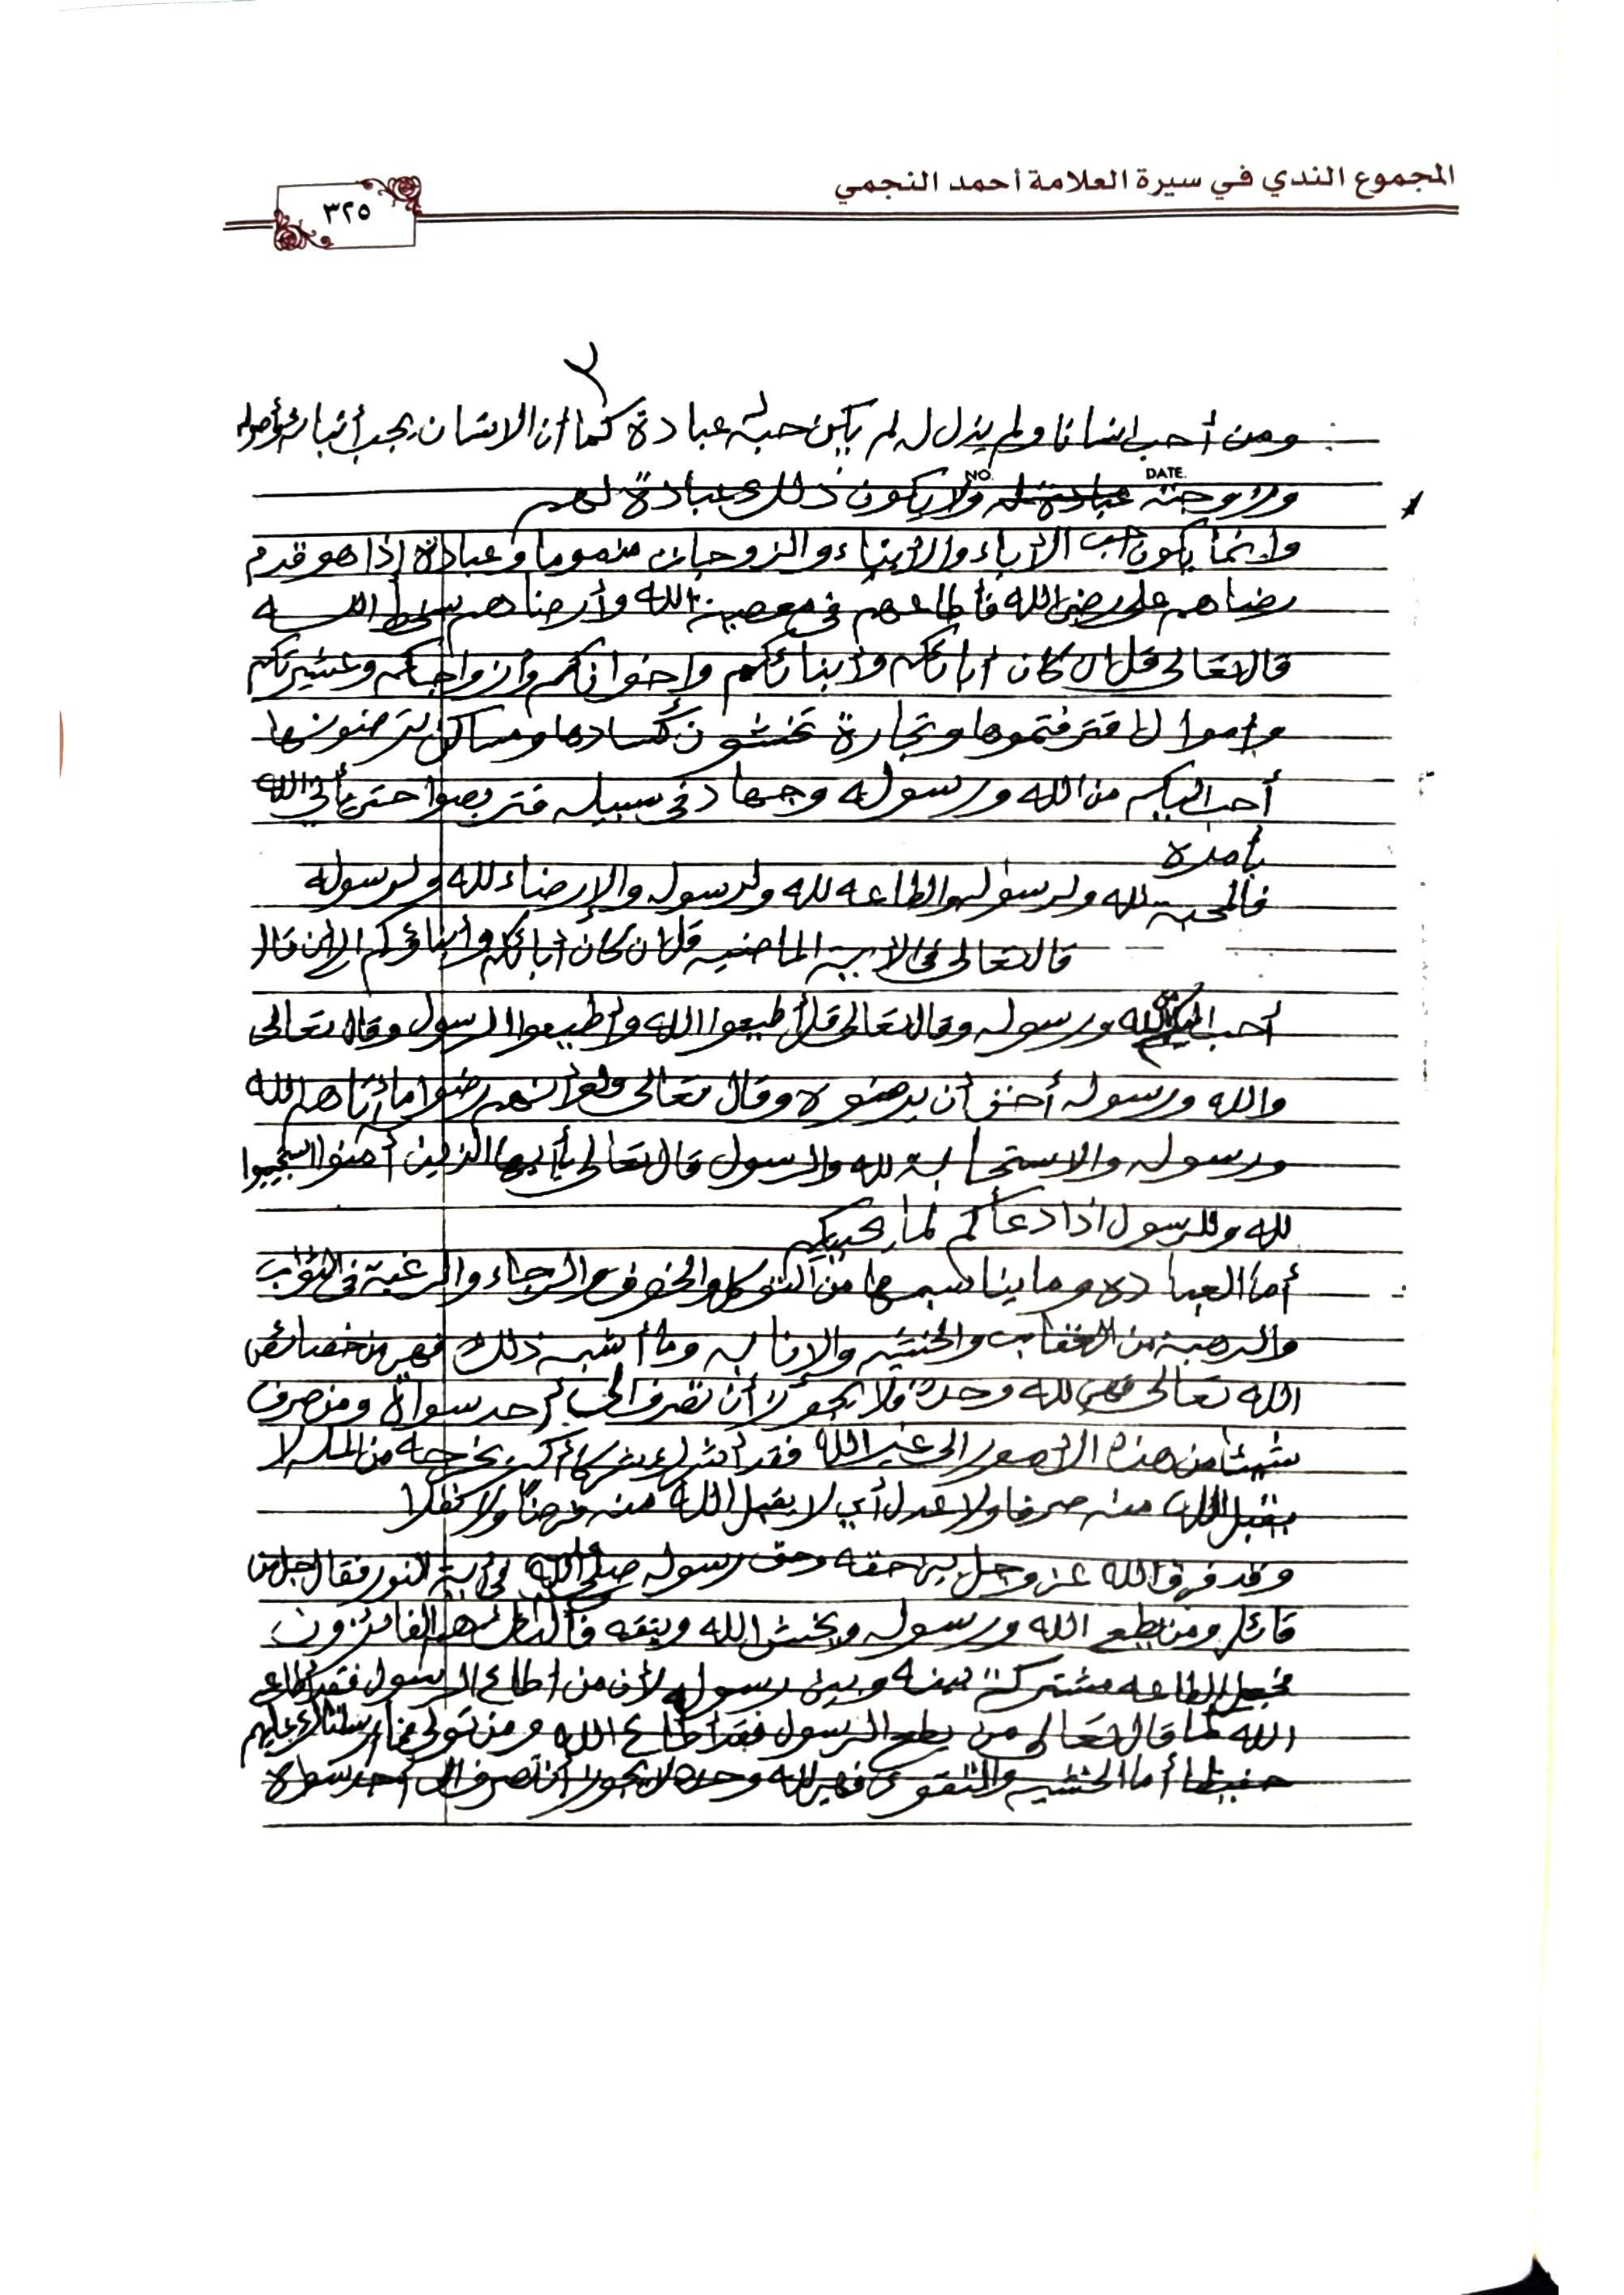 المجموع الندي في سيرة العلامة أحمد النجمي
٣٢٥
٢
ومن أحب انسانا ولم يذل له لم يكن حبه له عبادة كما أن الانسان يحب أبناءه وأصوله
DATE. NO.
وزوجته ولا يكون ذلك عبادة لهم
وإنما يكون حب الأباء والأبناء والزوجات مذموما وعبادة إذا هو قدم
رضاهم على رضى الله فأطاعهم في معصية الله وأرضاهم بسخط الله
قال تعالى قل ان كان أباؤكم وأبناؤكم واخوانكم وأزواجكم وعشيرتكم
وأموال اقترفتموها وتجارة تخشون كسادها ومساكن ترضونها
أحب اليكم من الله ورسوله وجهاد في سبيله فتربصوا حتى يأتي الله
بأمره
فالمحبة لله ولرسوله والطاعه لله ولرسوله والإرضاء لله ولرسوله
قال تعالى في الاية الماضيه قل ان كان أباؤكم وأبناؤكم الى أن قال
أحب اليكم من الله ورسوله وقال تعالى قل أطيعوا الله وأطيعوا الرسول وقال تعالى
والله ورسوله أحق أن يرضوه وقال تعالى ولو أنهم رضوا ما أتاهم الله
ورسوله والاستجابة لله والرسول قال تعالى يأيها الذين أمنوا استجيبوا
لله وللرسول اذا دعاكم لما يحييكم
أما العباده وما يناسبها من التوكل والخوف والرجاء والرغبة في الثواب
والرهبة من العقاب والخشيه والانابه وما أشبه ذلك فهي من خصائص
الله تعالى فهي لله وحده فلا يجوز أن تصرف الى أحد سواه ومن صرف
شيئا من هذه الأمور الى غير الله فقد أشرك شركا أكبر يخرجه من المله لا
يقبل الله منه صرفا ولا عدل أي لا يقبل الله منه فرضا ولا نفلا
وقد فرق الله عز وجل بين حقه وحق رسوله صلى الله في أية النور فقال جل من
قائل ومن يطع الله ورسوله ويخش الله ويتقه فأولئك هم الفائزون
فجعل الطاعه مشتركة بينه وبين رسوله لأن من اطاع الرسول فقد أطاع
الله كما قال تعالى من يطع الرسول فقد أطاع الله ومن تولى فما أرسلناك عليهم
حفيظا أما الخشيه والتقوى فهي لله وحده لا يجوز أن تصرف الى أحد سواه